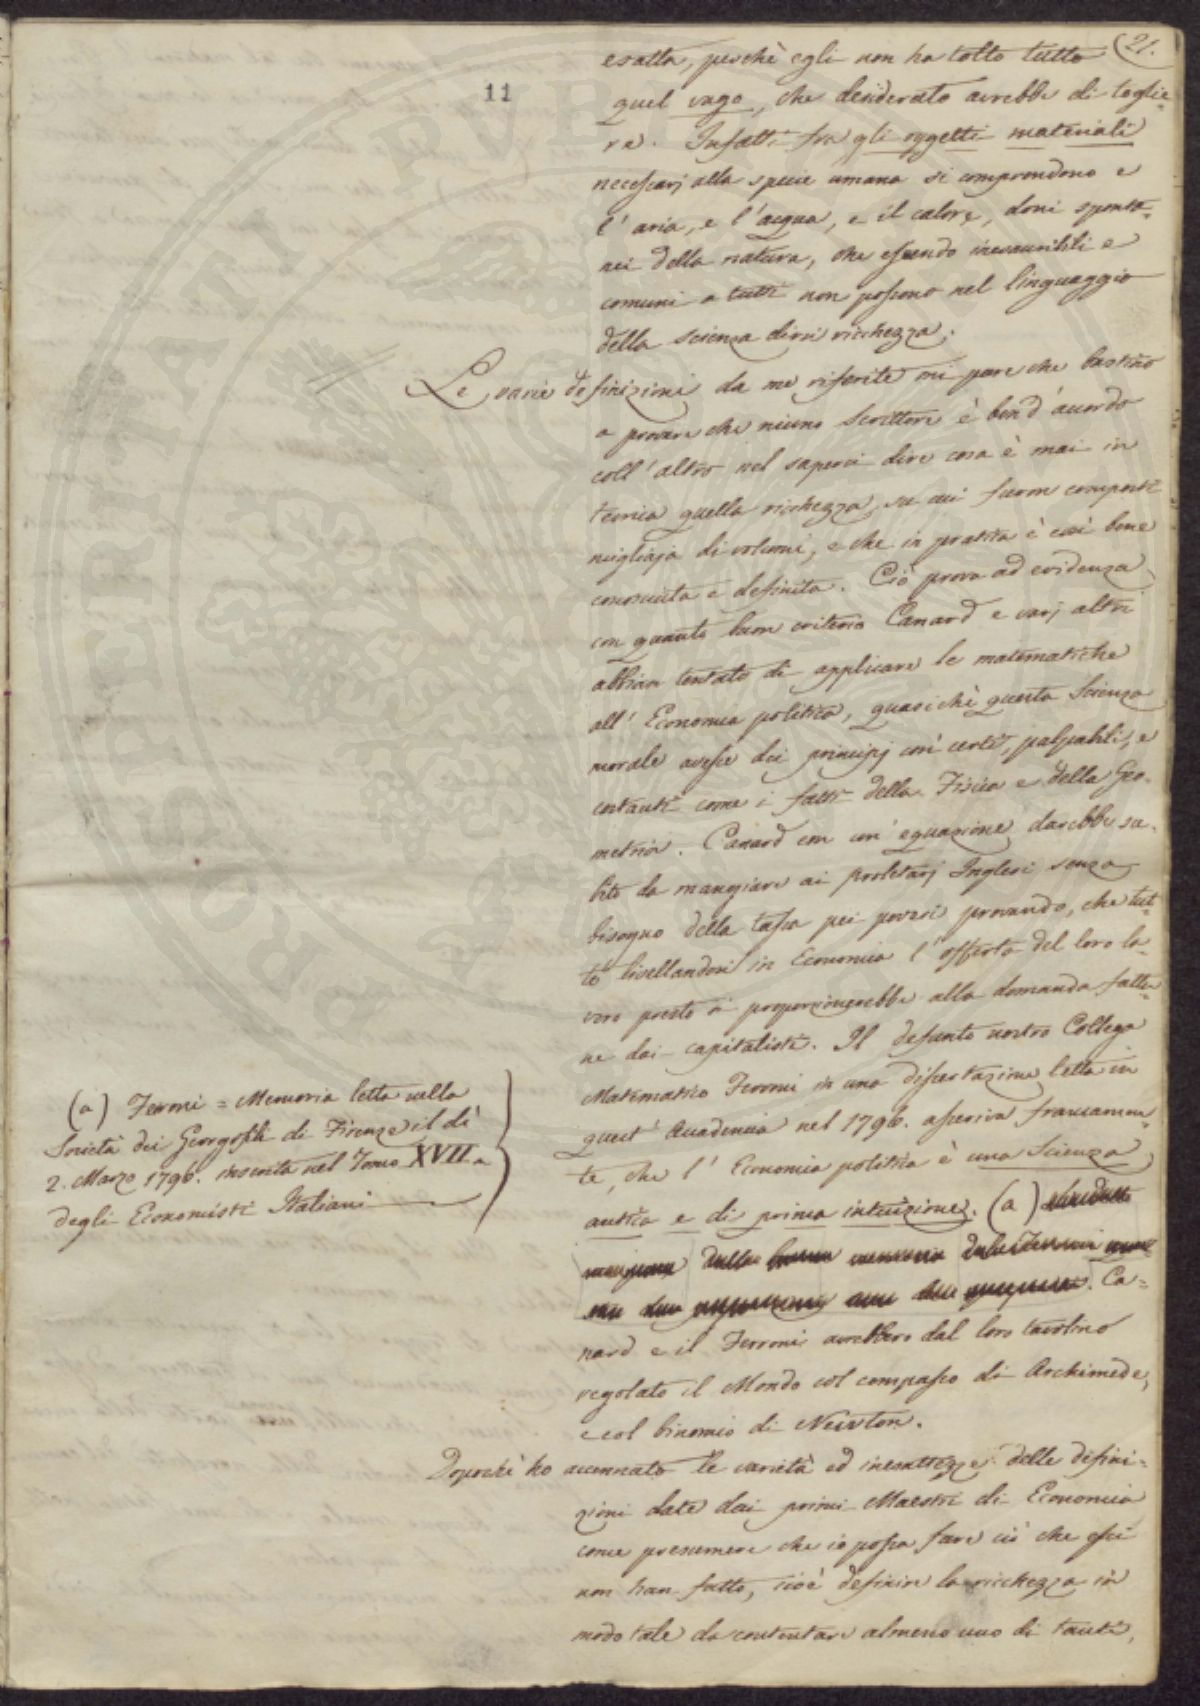 21.
11
esatta, perchè egli non ha tolto tutto
quel vago, che desiderato avrebbe di toglie=
re. Infatti fra gli oggetti materiali
necessarj alla specie umana si comprendono e
l'aria, e l'acqua, e il calore, doni sponta=
nei della natura, che essendo inesauribili e
comuni a tutti non possono nel linguaggio
della scienza dirsi ricchezza.
Le varie definizioni da me riferite mi pare che bastino
a provare che niuno Scrittore è ben d'accordo
coll'altro nel saperci dire cosa è mai in
teorica quella ricchezza, su cui furon composti
migliaja di volumi, e che in pratica è così bene
conosciuta e definita. Ciò prova ad evidenza
con quanto buon criterio Canard e varj altri
abbian tentato di applicare le matematiche
all'Economia politica, quasichè questa Scienza
morale avesse dei principj così certi, palpabili, e
costanti come i fatti della Fisica e della Geo=
metria. Canard con un'equazione darebbe su=
bito da mangiare ai proletarj Inglesi senza
bisogno della tassa pei poveri provando, che tut=
to livellandosi in Economia l'offerta del loro la=
voro presto si proporzionerebbe alla domanda fatta=
ne dai capitalisti. Il defunto nostro Collega
Matematico Ferroni in una dissertazione letta in
quest'Accademia nel 1796. asseriva francamen=
te, che l'Economia politica è una Scienza
antica e di prima intuizione. (a)
dalla
Ca=
nard e il Ferroni avrebbero dal loro tavolino
regolato il Mondo col compasso di Archimede,
e col binomio di Newton.
Dopochè ho accennato le varietà ed inesattezze delle defini=
zioni date dai primi Maestri di Economia
come presumere che io possa fare ciò che essi
non han fatto, cioè definire la ricchezza in
modo tale da contentare almeno uno di tanti,
(a) Ferroni = Memoria letta nella
Società dei Georgofili di Firenze il dì
2. Marzo 1796. inserita nel Tomo XVII.
degli Economisti Italiani